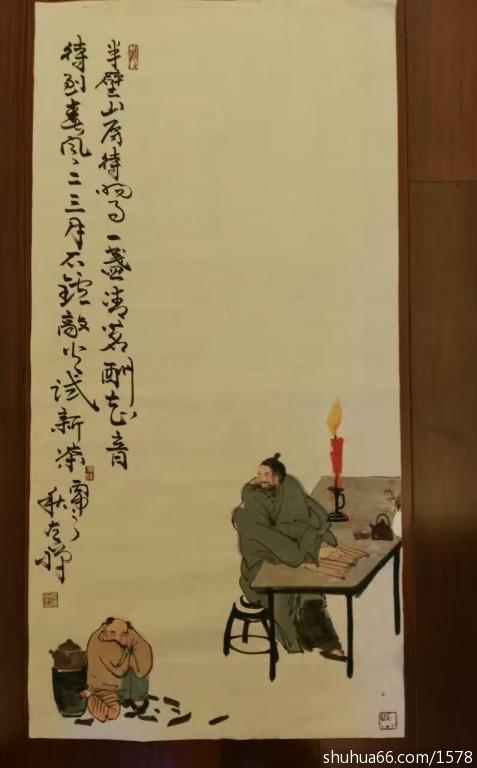 半壁山房待明月一盏清茗酬知音
待到春风二三月石鑪敲火试新茶
shuhua66.com/1578